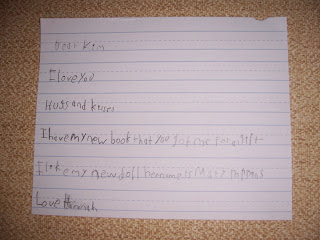 Dear Kim
I love you
Hugs and kisses
I love my new book that you got me for a gift
I like my new doll because is Mary Poppins
Love Hannah